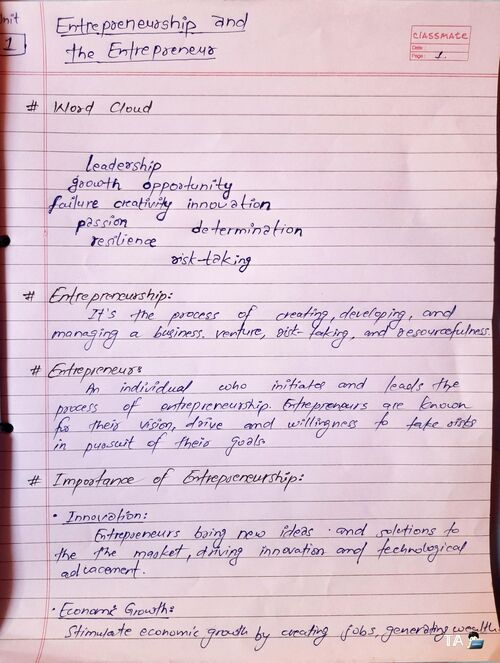 Unit
1
Entrepreneurship and
the Entrepreneur
CLASSMATE
Date :
Page : 1.
# Word Cloud
leadership
growth opportunity
failure creativity innovation
passion determination
resilience
risk-taking
# Entrepreneurship:
It's the process of creating, developing, and
managing a business. venture, risk-taking, and resourcefulness
# Entrepreneurs
An individual who initiates and leads the
process of entrepreneurship. Entrepreneurs are known
for their vision, drive and willingness to take risks
in pursuit of their goals
# Importance of Entrepreneurship:
• Innovation:
Entrepreneurs bring new ideas and solutions to
the the market, driving innovation and technological
advacement.
• Economic Growth:
Stimulate economic growth by creating jobs, generating wealth
TA